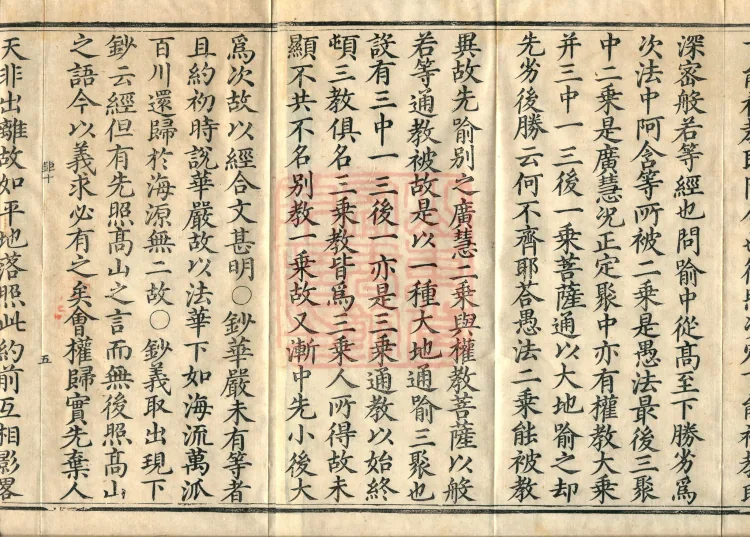 深密般若等經也問喻中從髙至下勝劣爲
次法中阿含等所被二乗是愚法最後三聚
中二乗是廣慧况正定聚中亦有權教大乗
并三中一三後一乗菩薩通以大地喻之却
先劣後勝云何不齊耶荅愚法二乗能被教
異故先喻别之廣慧二乗與權教菩薩以般
若等通教被故是以一種大地通喻三聚也
設有三中一三後一亦是三乗通教以始終
頓三教俱名三乗教皆爲三乗人所得故未
顯不共不名别教一乗故又漸中先小後大
爲次故以經合文甚明○鈔華嚴未有等者
且約初時說華嚴故以法華下如海流萬派
百川還歸於海源無二故○鈔義取出現下
鈔云經但有先照髙山之言而無後照髙山
之語今以義求必有之矣會權歸實先棄人
五
天非出離故如平地落照此約前互相影畧